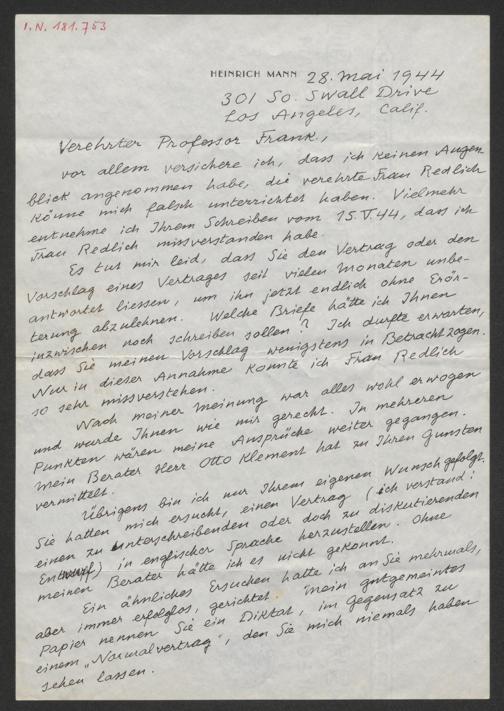 I.N. 181.753
HEINRICH MANN 28. Mai 1944
301 So. Swall Drive
Los Angeles, Calif.
Verehrter Professor Frank,
vor allem versichere ich, dass ich keinen Augen
blick angenommen habe, die verehrte Frau Redlich
könne mich falsch unterrichtet haben. Vielmehr
entnehme ich Ihrem Schreiben vom 15.V.44, dass ich
Frau Redlich missverstanden habe.
Es tut mir leid, dass Sie den Vertrag oder den
Vorschlag eines Vertrages seit vielen Monaten unbe-
antwortet liessen, um ihn jetzt endlich ohne Erör-
terung abzulehnen. Welche Briefe hätte ich Ihnen
inzwischen noch schreiben sollen? Ich durfte erwarten,
dass Sie meinen Vorschlag wenigstens in Betracht zogen.
Nur in dieser Annahme konnte ich Frau Redlich
so sehr missverstehen.
Nach meiner Meinung war alles wohl erwogen
und wurde Ihnen wie mir gerecht. In mehreren
Punkten wären meine Ansprüche weiter gegangen.
Mein Berater Herr Otto Klement hat zu Ihren Gunsten
vermittelt.
Übrigens bin ich nur Ihrem eigenen Wunsch gefolgt.
Sie hatten mich ersucht, einen Vertrag (ich verstand:
einen zu unterschreibenden oder doch zu diskutierenden
Entwurf) in englischer Sprache herzustellen. Ohne
meinen Berater hätte ich es nicht gekonnt.
Ein ähnliches Ersuchen hatte ich an Sie mehrmals,
aber immer erfolglos, gerichtet. Mein gutgemeintes
Papier nennen Sie ein Diktat, im Gegensatz zu
einem „Normalvertrag", den Sie mich niemals haben
sehen lassen.